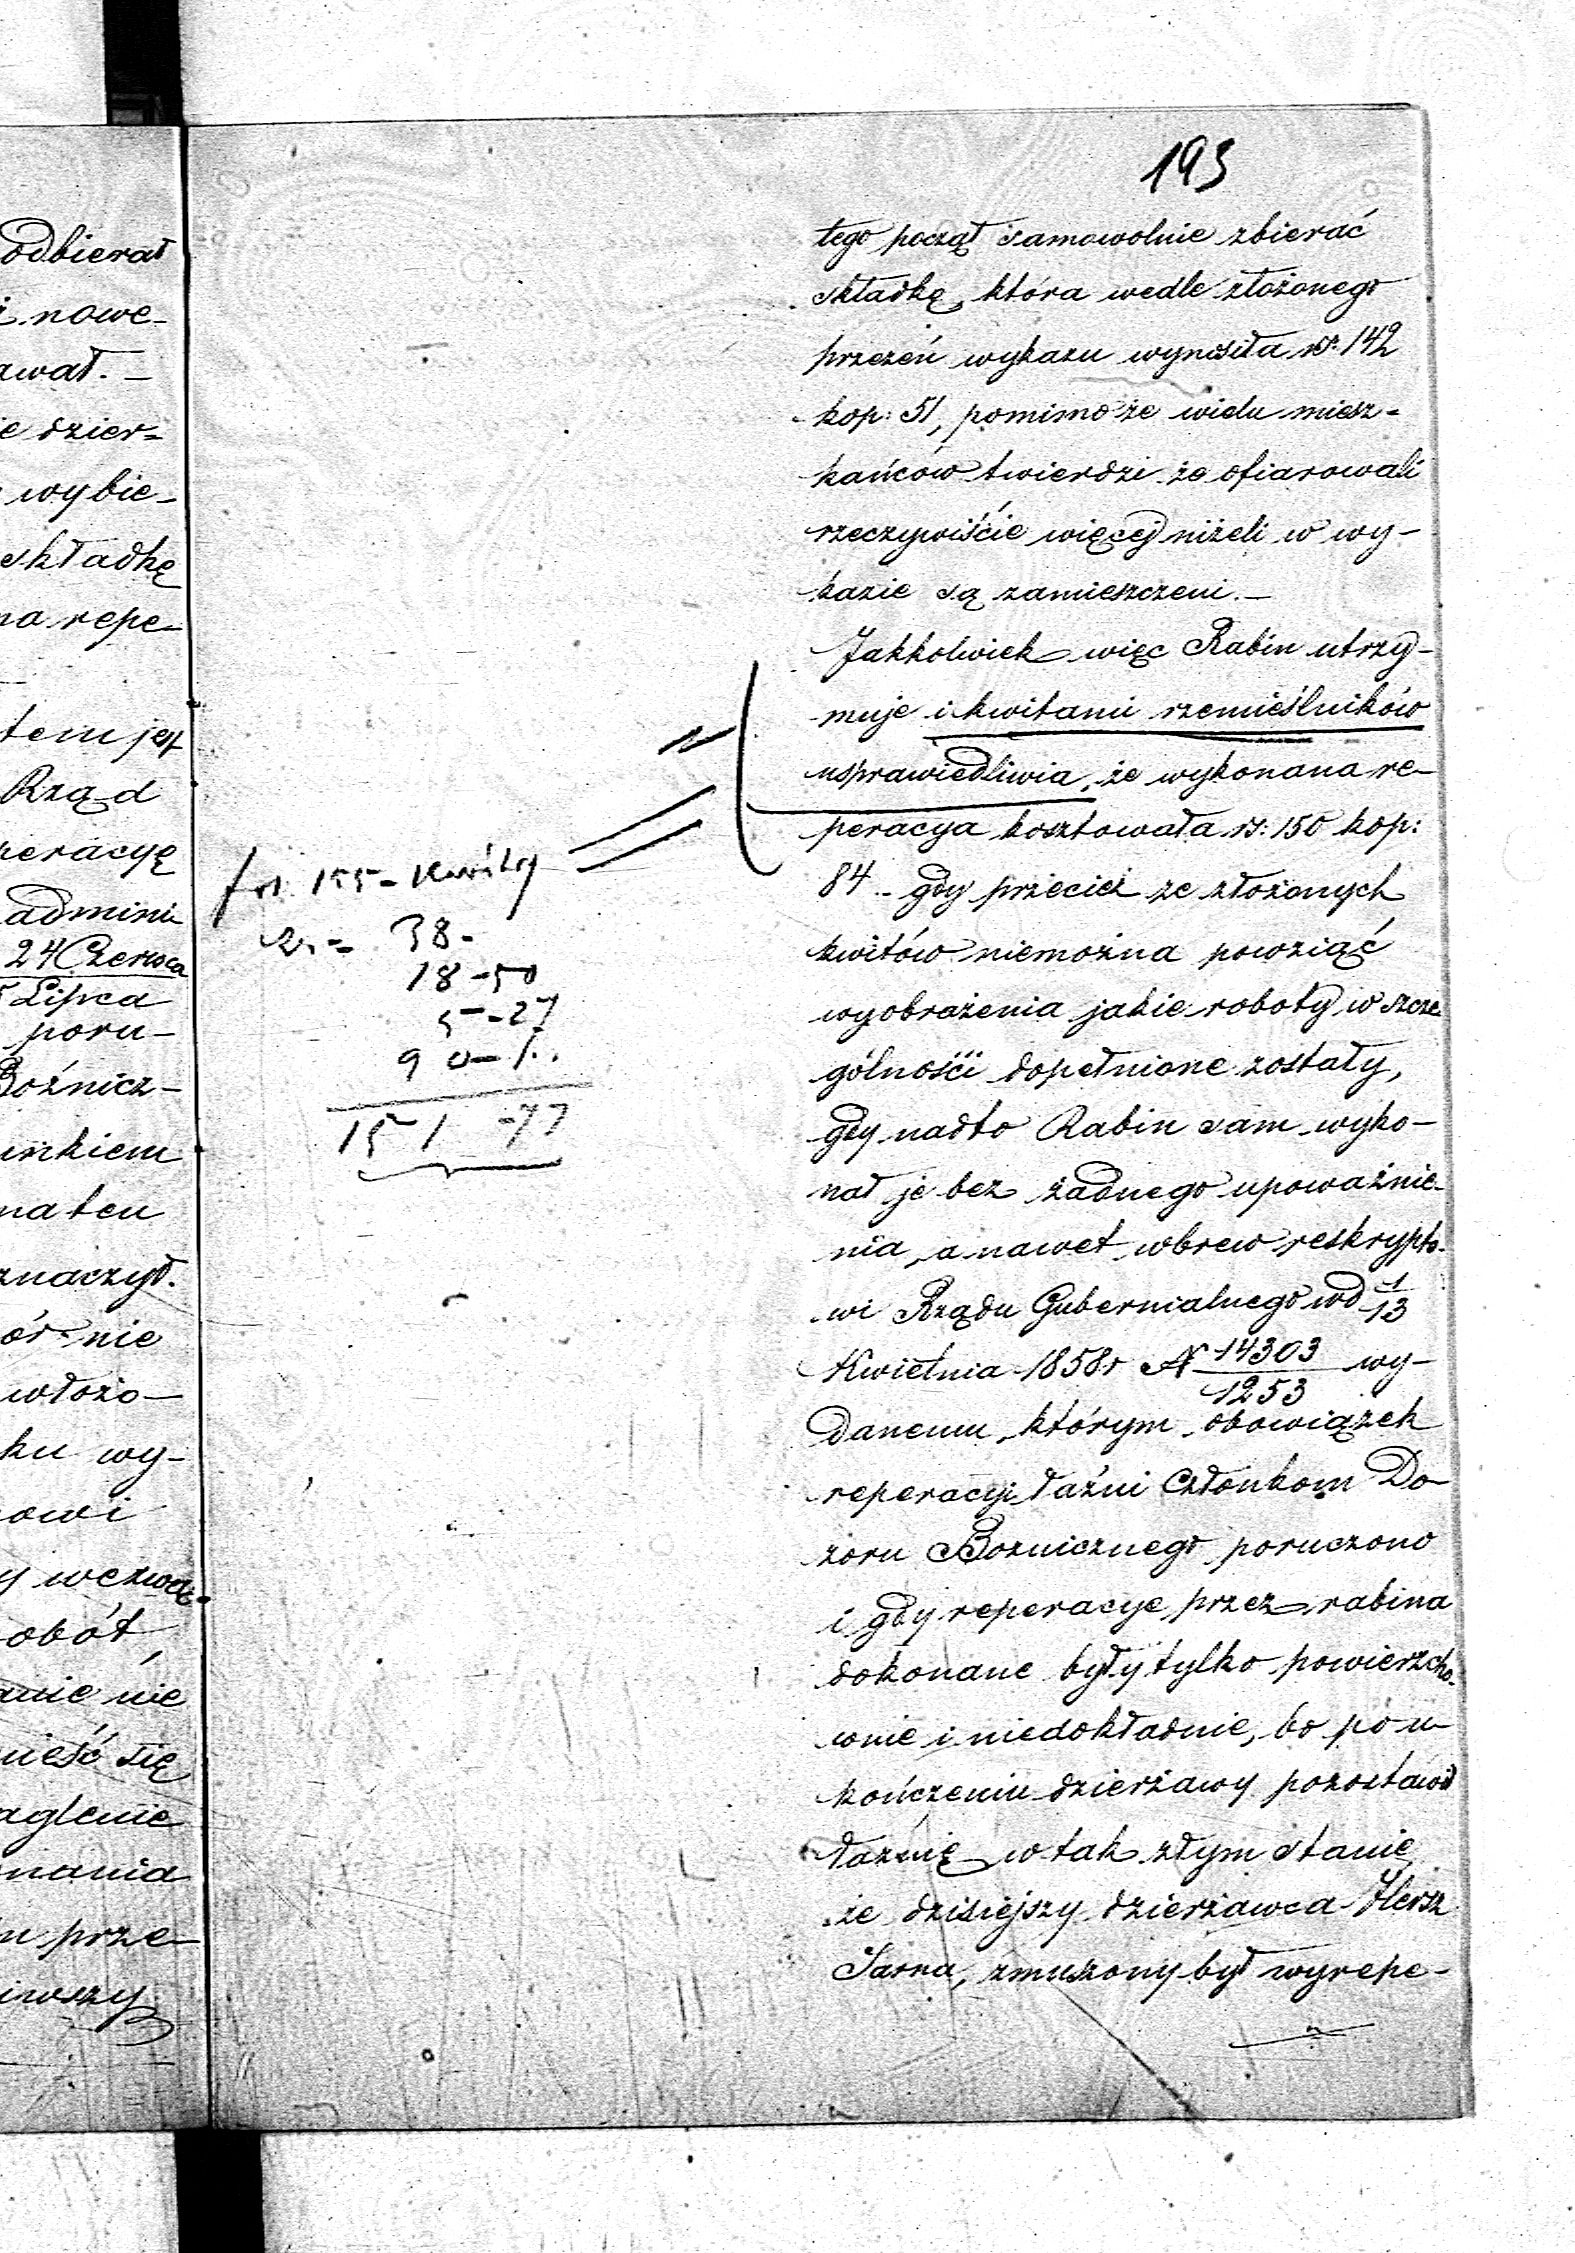 odbierał
ż nowe-
awał. -
ie dzier=
wybie-
składkę
na repe-
tem jest
Rząd
peracyę
admini
24 Czerwca
5 Lipca
poru-
Boźnicz-
unkiem
na ten
znaczył.
ór nie
włożo-
ku wy-
owi
y wezwa-
obót,
anie nie
nieść się
aglenie
nania
m prze-
iwszy
193
tego począł samowolnie zbierać
składkę, która wedle złożonego
przezeń wykazu wynosiła rs. 142
kop: 51, pomimo że wielu miesz-
kańców twierdzi że ofiarowali
rzeczywiście więcej niżeli w wy-
kazie są zamieszczeni.-
Jakkolwiek więc Rabin utrzy-
muje i kwitami rzemieślników
usprawiedliwia, że wykonana re-
peracya kosztowała rs: 150 kop:
84 - gdy przecież ze złożonych
kwitów niemożna powziąć
wyobrażenia jakie roboty w szcze
gólności dopełnione zostały,
gdy nadto Rabin sam wyko-
nał je bez żadnego upoważnie-
nia, a nawet wbrew reskrypto-
wi Rządu Gubernialnego wd 1/13
Kwietnia 1858 r N 14303/1253 wy-
danemu, którym obowiązek
reperacyi łaźni Członkom Do-
zoru Boznicznego poruczono
i gdy reperacye przez rabina
dokonane były tylko powierzcho-
wnie i niedokładnie, bo po u-
kończeniu dzierżawy pozostawił
łaźnię w tak złym stanie,
że dzisiejszy dzierżawca Hersz
Sarna, zmuszony był wyrepe-
155 - Kwity
38 -
18 - 50
5 - 27
90 -
151 - 77